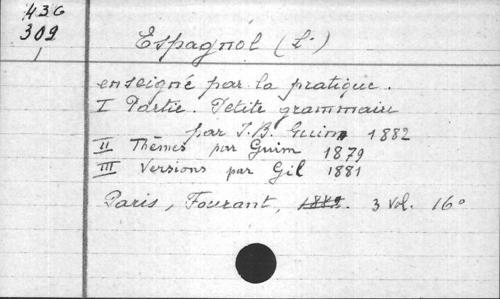 436
309
/
Espagnol (L')
enseigné par la pratique.
I Partie. Petite grammaire
par J.B. Guim 1882
II Thèmes par Guim 1879
III Versions par Gil 1881
Paris, Fourant, 1882. 3 vol. 16°